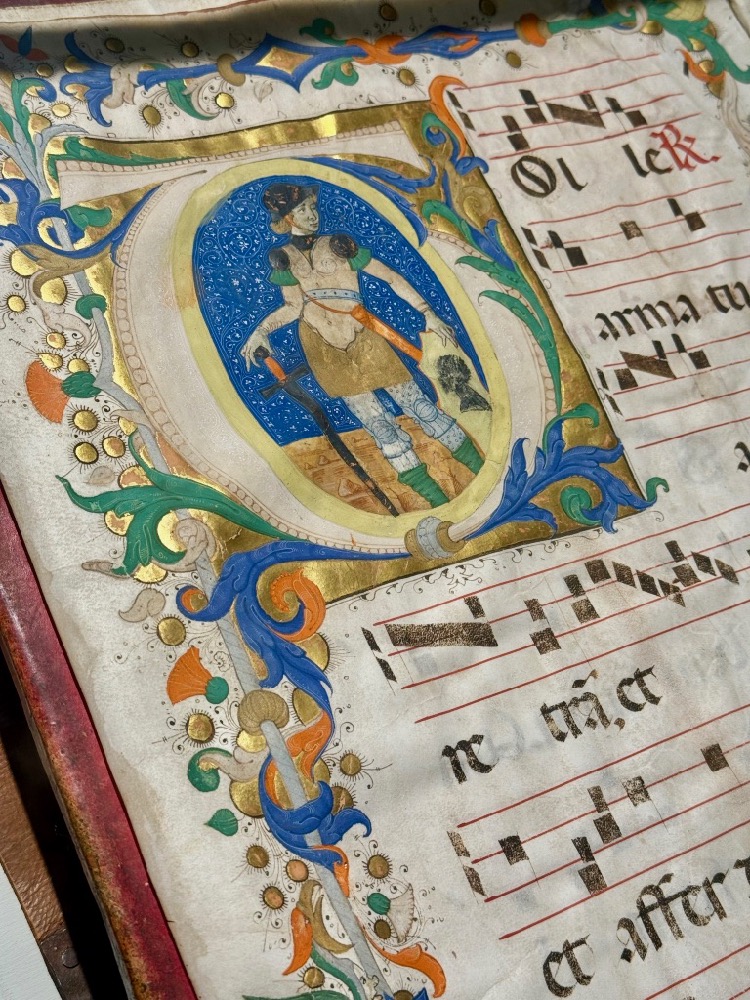 TOl le ℟.
arma tu
re trã, et
et affer